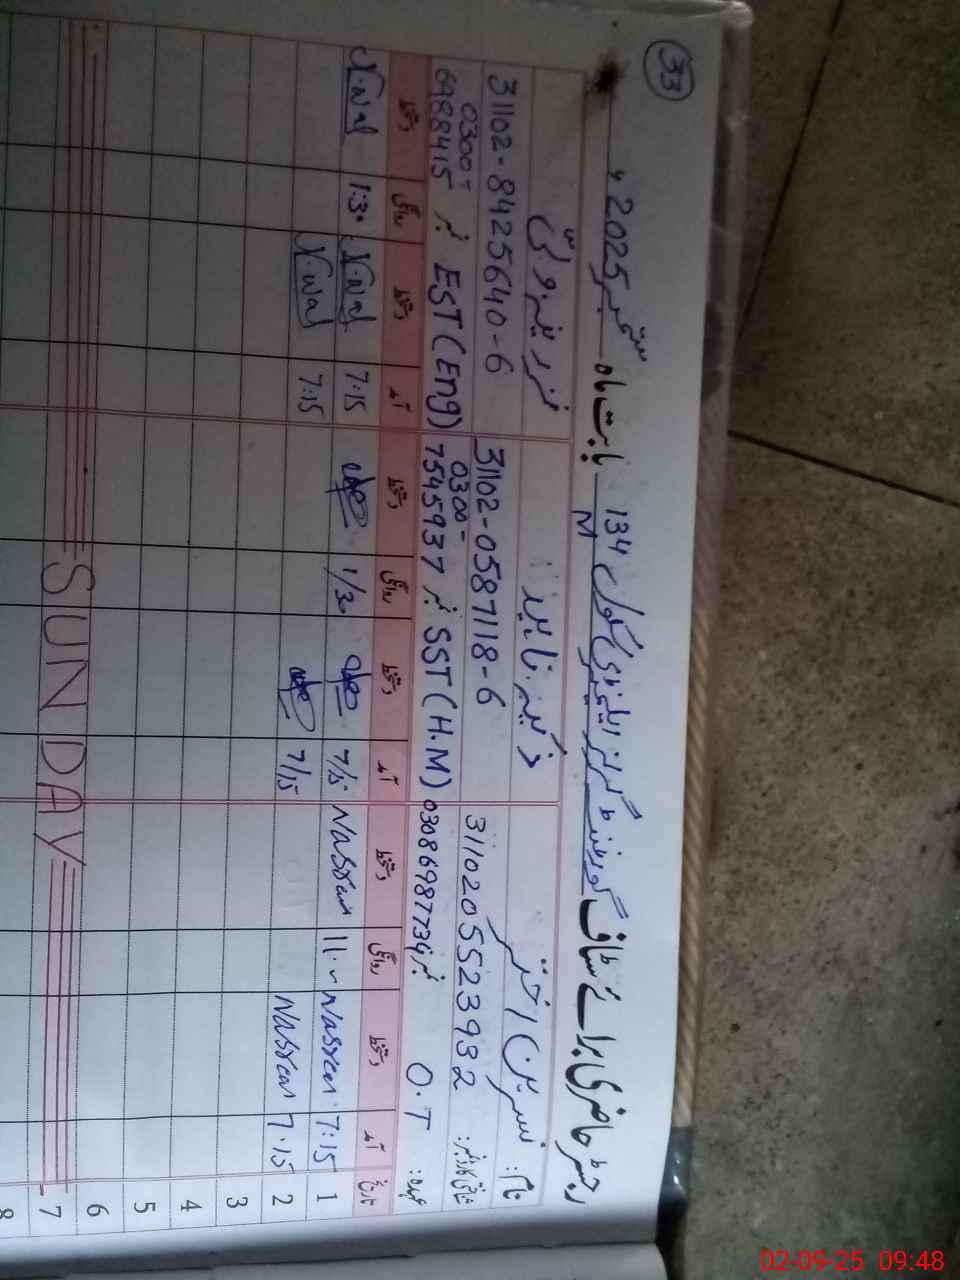 33
رجسٹر حاضری برائے سٹاف گورنمنٹ گرلز ایلیمنٹری سکول 134 M بابت ماہ ستمبر 2025ء
نام: نسرین اختر
شناختی کارڈ نمبر: 3110205523932
عہدہ: O.T نمبر 03086987734
31102-0587118-6
SST (H.M) نمبر 0300-7545937
31102-8425640-6
EST (Eng) نمبر 0300-6988415
تاریخ آمد دستخط روانگی دستخط آمد دستخط روانگی دستخط آمد دستخط روانگی دستخط
1 7:15 Nasreen 11. Nasreen 7/15 1/30 7:15 1:30
2 7.15 Nasreen 7/15 7:15
3
4
5
6
7 SUNDAY
8
02-09-25 09:48